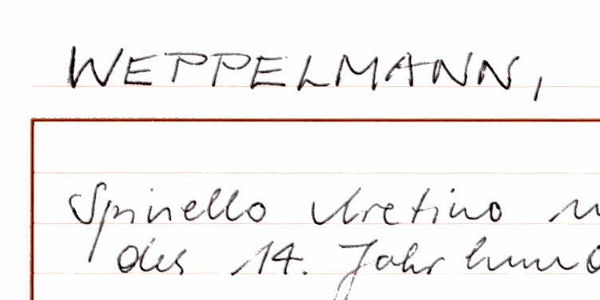 WEPPELMANN,
Spinello Aretino
des 14. Jahrhund